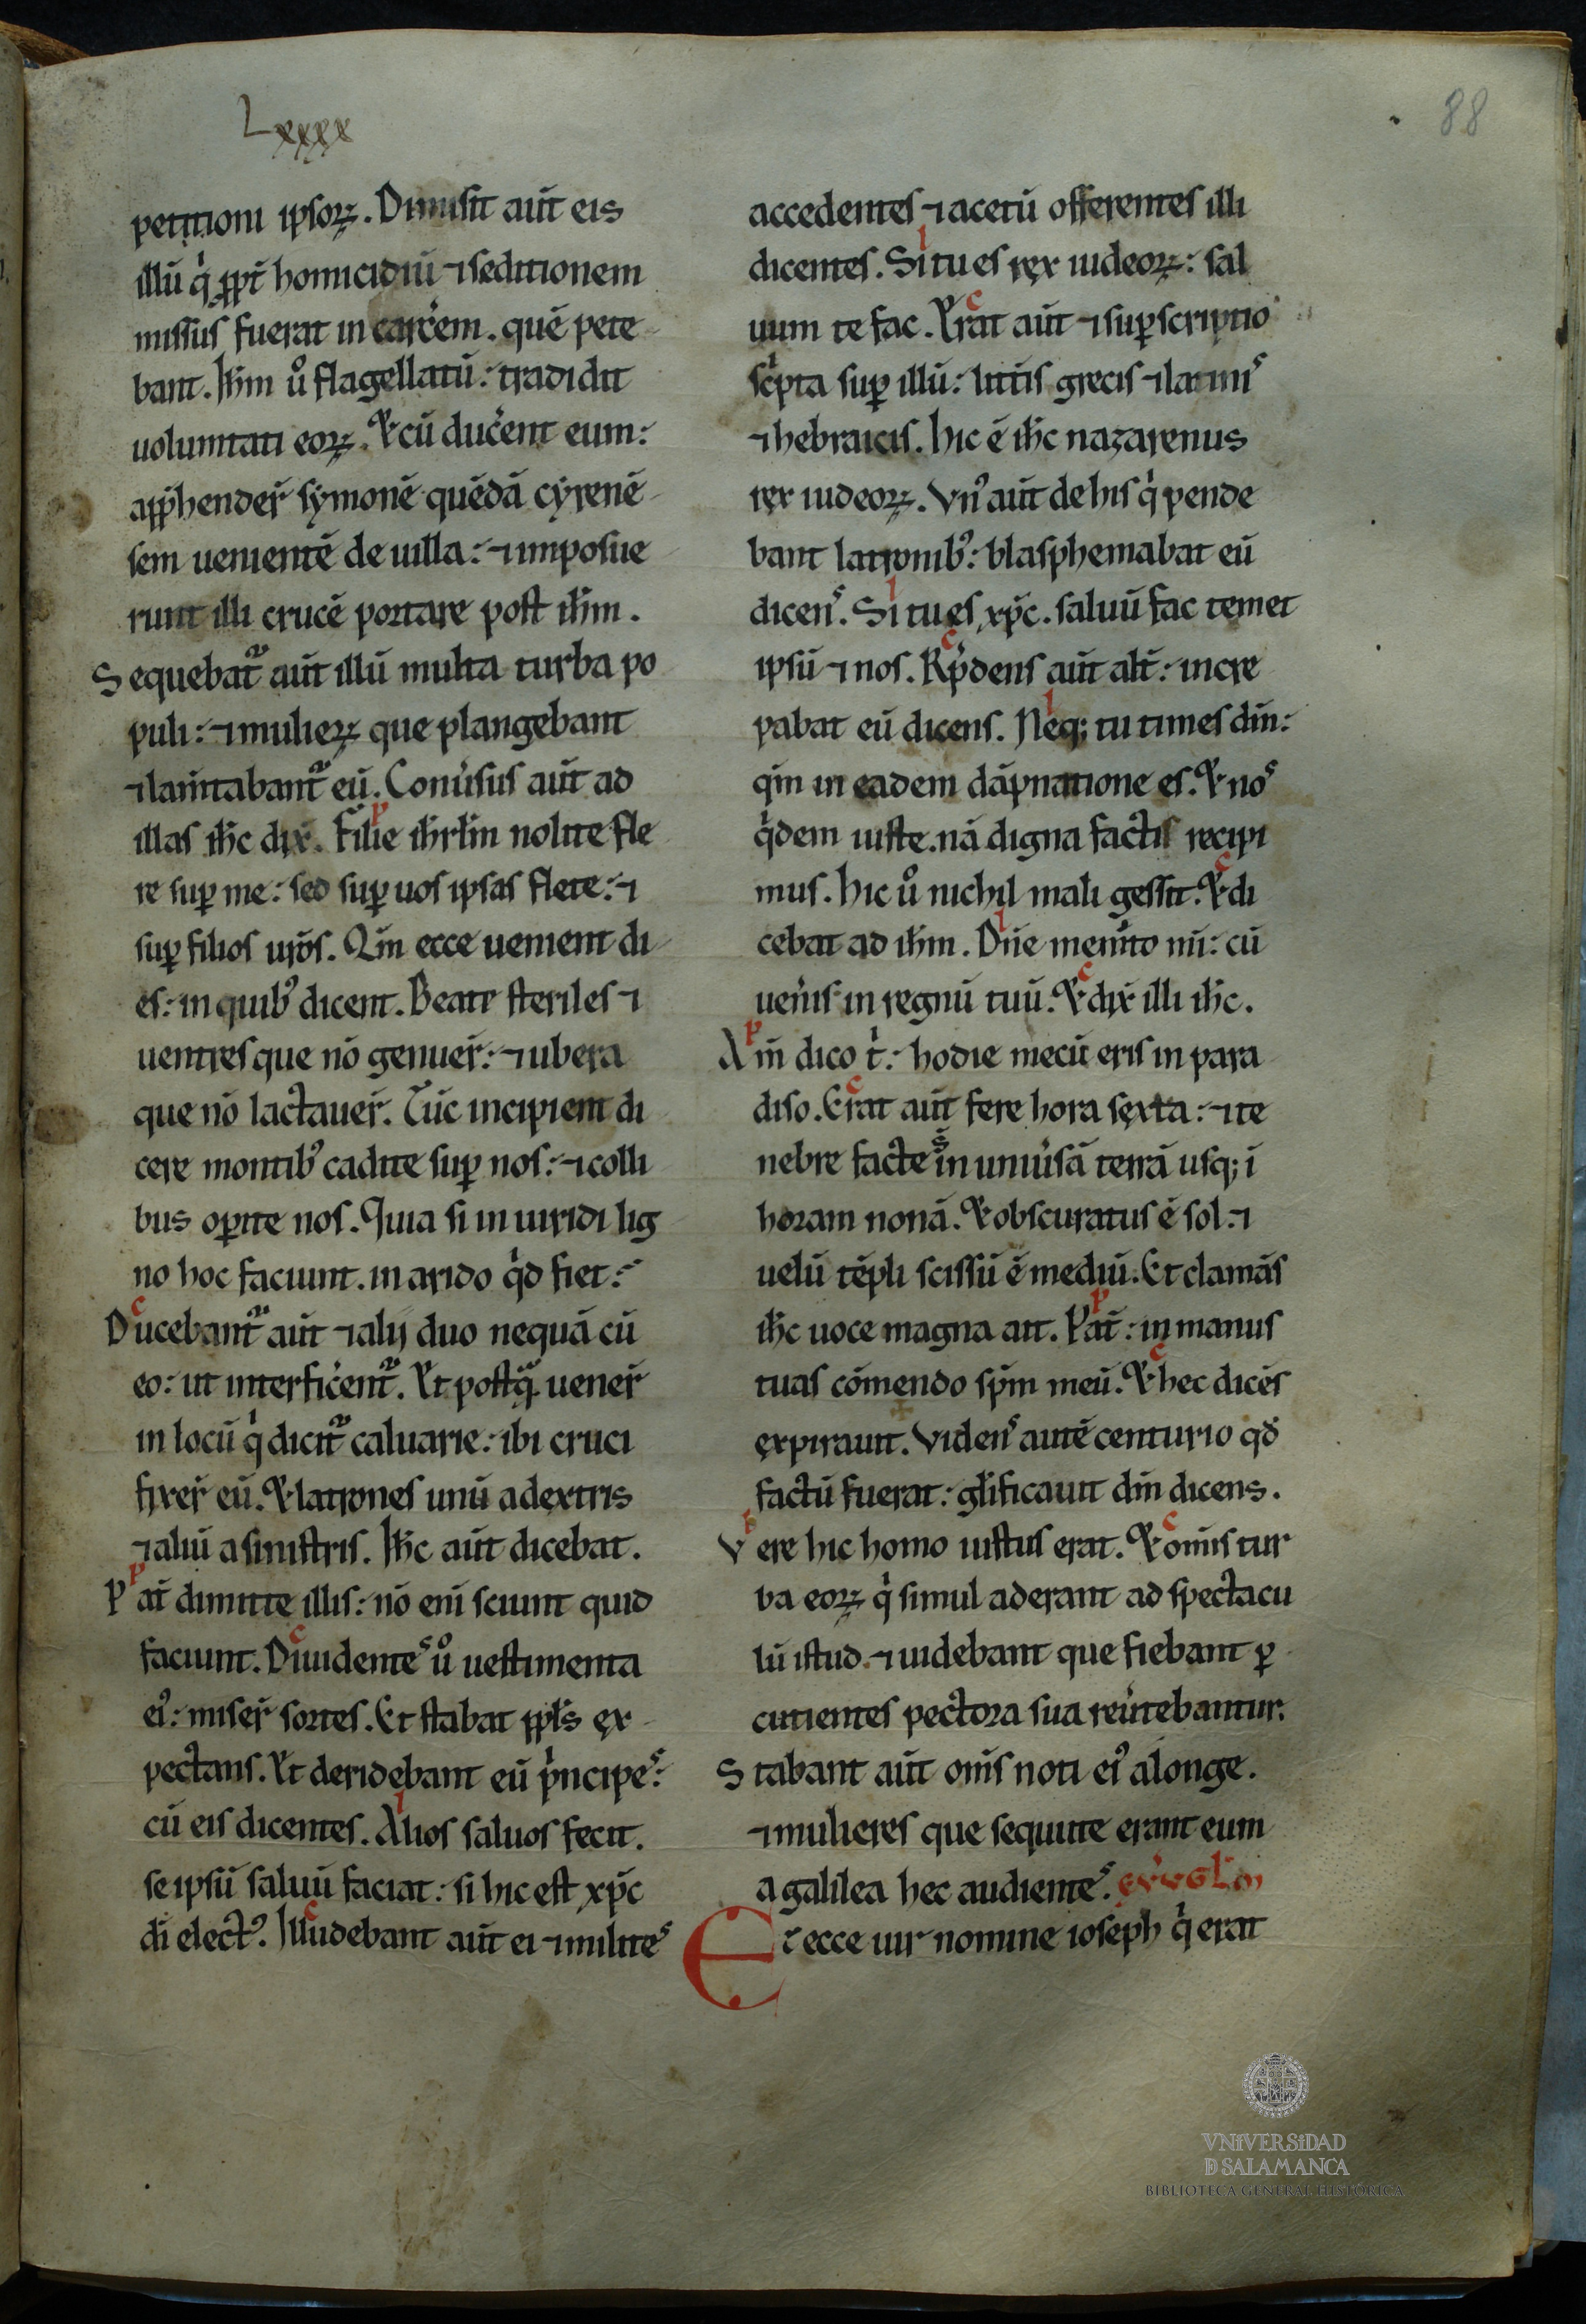 Lxxxx
88
petitioni ipsoꝝ. Dimisit aūt eis
illū q̇ ꝓpt̄ homicidiū ⁊ seditionem
missus fuerat in carc̄em. quē pete
bant. Ih̄m ů flagellatū: tradidit
uoluntati eoꝝ. Et cū duc̄ent eum:
app̄hender̄ sẏmonē quēdā cẏrenē
sem uenientē de uilla: ⁊ imposue
runt illi crucē portare post ih̄m.
Sequebat᷑ aūt illū multa turba po
puli: ⁊ mulieꝝ que plangebant
⁊ lam̄tabant᷑ eū. Conu̾sus aūt ad
illas ih̄c dix̄. Filie ih̄rl̄m nolite fle
re suꝑ me: sed suꝑ uos ipsas flete: ⁊
suꝑ filios ur̄os. Qm̄ ecce uenient di
es: in quibꝰ dicent. Beate steriles ⁊
uentres que nō genuer̄: ⁊ ubera
que nō lactauer̄. Tūc incipient di
cere montibꝰ cadite suꝑ nos: ⁊ colli
bus oꝑite nos. Quia si in uiridi lig
no hoc faciunt. in arido q̇d fiet:
Ducebant᷑ aūt ⁊ alij duo nequā cū
eo: ut interfic̄ent᷑. Et postq̄ uener̄
in locū q̇ dicit᷑ caluarie: ibi cruci
fixer̄ eū. Et latrones unū a dextris
⁊ aliū a sinistris. Ih̄c aūt dicebat.
Pat̄ dimitte illis: nō eni sciunt quid
faciunt. Diuidentes ů uestimenta
eiꝰ: miser̄ sortes. Et stabat ppl̄s ex
pectans. Et deridebant eū ṗncipes:
cū eis dicentes. Alios saluos fecit.
se ipsū saluū faciat: si hic est xp̄c
di electꝰ. Illudebant aūt ei ⁊ milites
accedentes ⁊ acetū offerentes illi
dicentes. Si tu es rex iudeoꝝ: sal
uum te fac. Erat aūt ⁊ suꝑscriptio
sċpta suꝑ illū: litt̄is grecis ⁊ latinis
⁊ hebraicis. hic ē ih̄c nazarenus
rex iudeoꝝ. Vnꝰ aūt de his q̇ pende
bant latronibꝰ: blasphemabat eū
dicens. Si tu es xp̄c. saluū fac temet
ipsū ⁊ nos. Rp̄dens aūt alt̄: incre
pabat eū dicens. Neq; tu times dm̄:
qm̄ in eadem dāpnatione es. Et nos
q̇dem iuste. nā digna factis recipi
mus. hic ů nichil mali gessit. Et di
cebat ad ih̄m. Dn̄e mem̄to mī: cū
uen̄is in regnū tuū. Et dix̄ illi ih̄c.
Am̄ dico t̄: hodie mecū eris in para
diso. Erat aūt fere hora sexta: ⁊ te
nebre facte s̄ in uniu̾sā terrā usq; ī
horam nonā. Et obscuratus ē sol: ⁊
uelū tēpli scissū ē mediū. Et clamās
ih̄c uoce magna ait. Pat̄: in manus
tuas cōmendo sp̄m meū. Et hec dicēs
expirauit. Videns autē centurio qd̄
factū fuerat: gl̄ificauit dm̄ dicens.
Vere hic homo iustus erat. Et om̄is tur
ba eoꝝ q̇ simul aderant ad spectacu
lū istud. ⁊ uidebant que fiebant ꝑ
cutientes pectora sua reu̾tebantur.
Stabant aūt om̄s noti eiꝰ a longe.
⁊ mulieres que sequute erant eum
a galilea hec audientes. eu̾ugl̄m
Et ecce uir nomine ioseph q̇ erat
VNIVERSIDAD
D SALAMANCA
BIBLIOTECA GENERAL HISTÓRICA